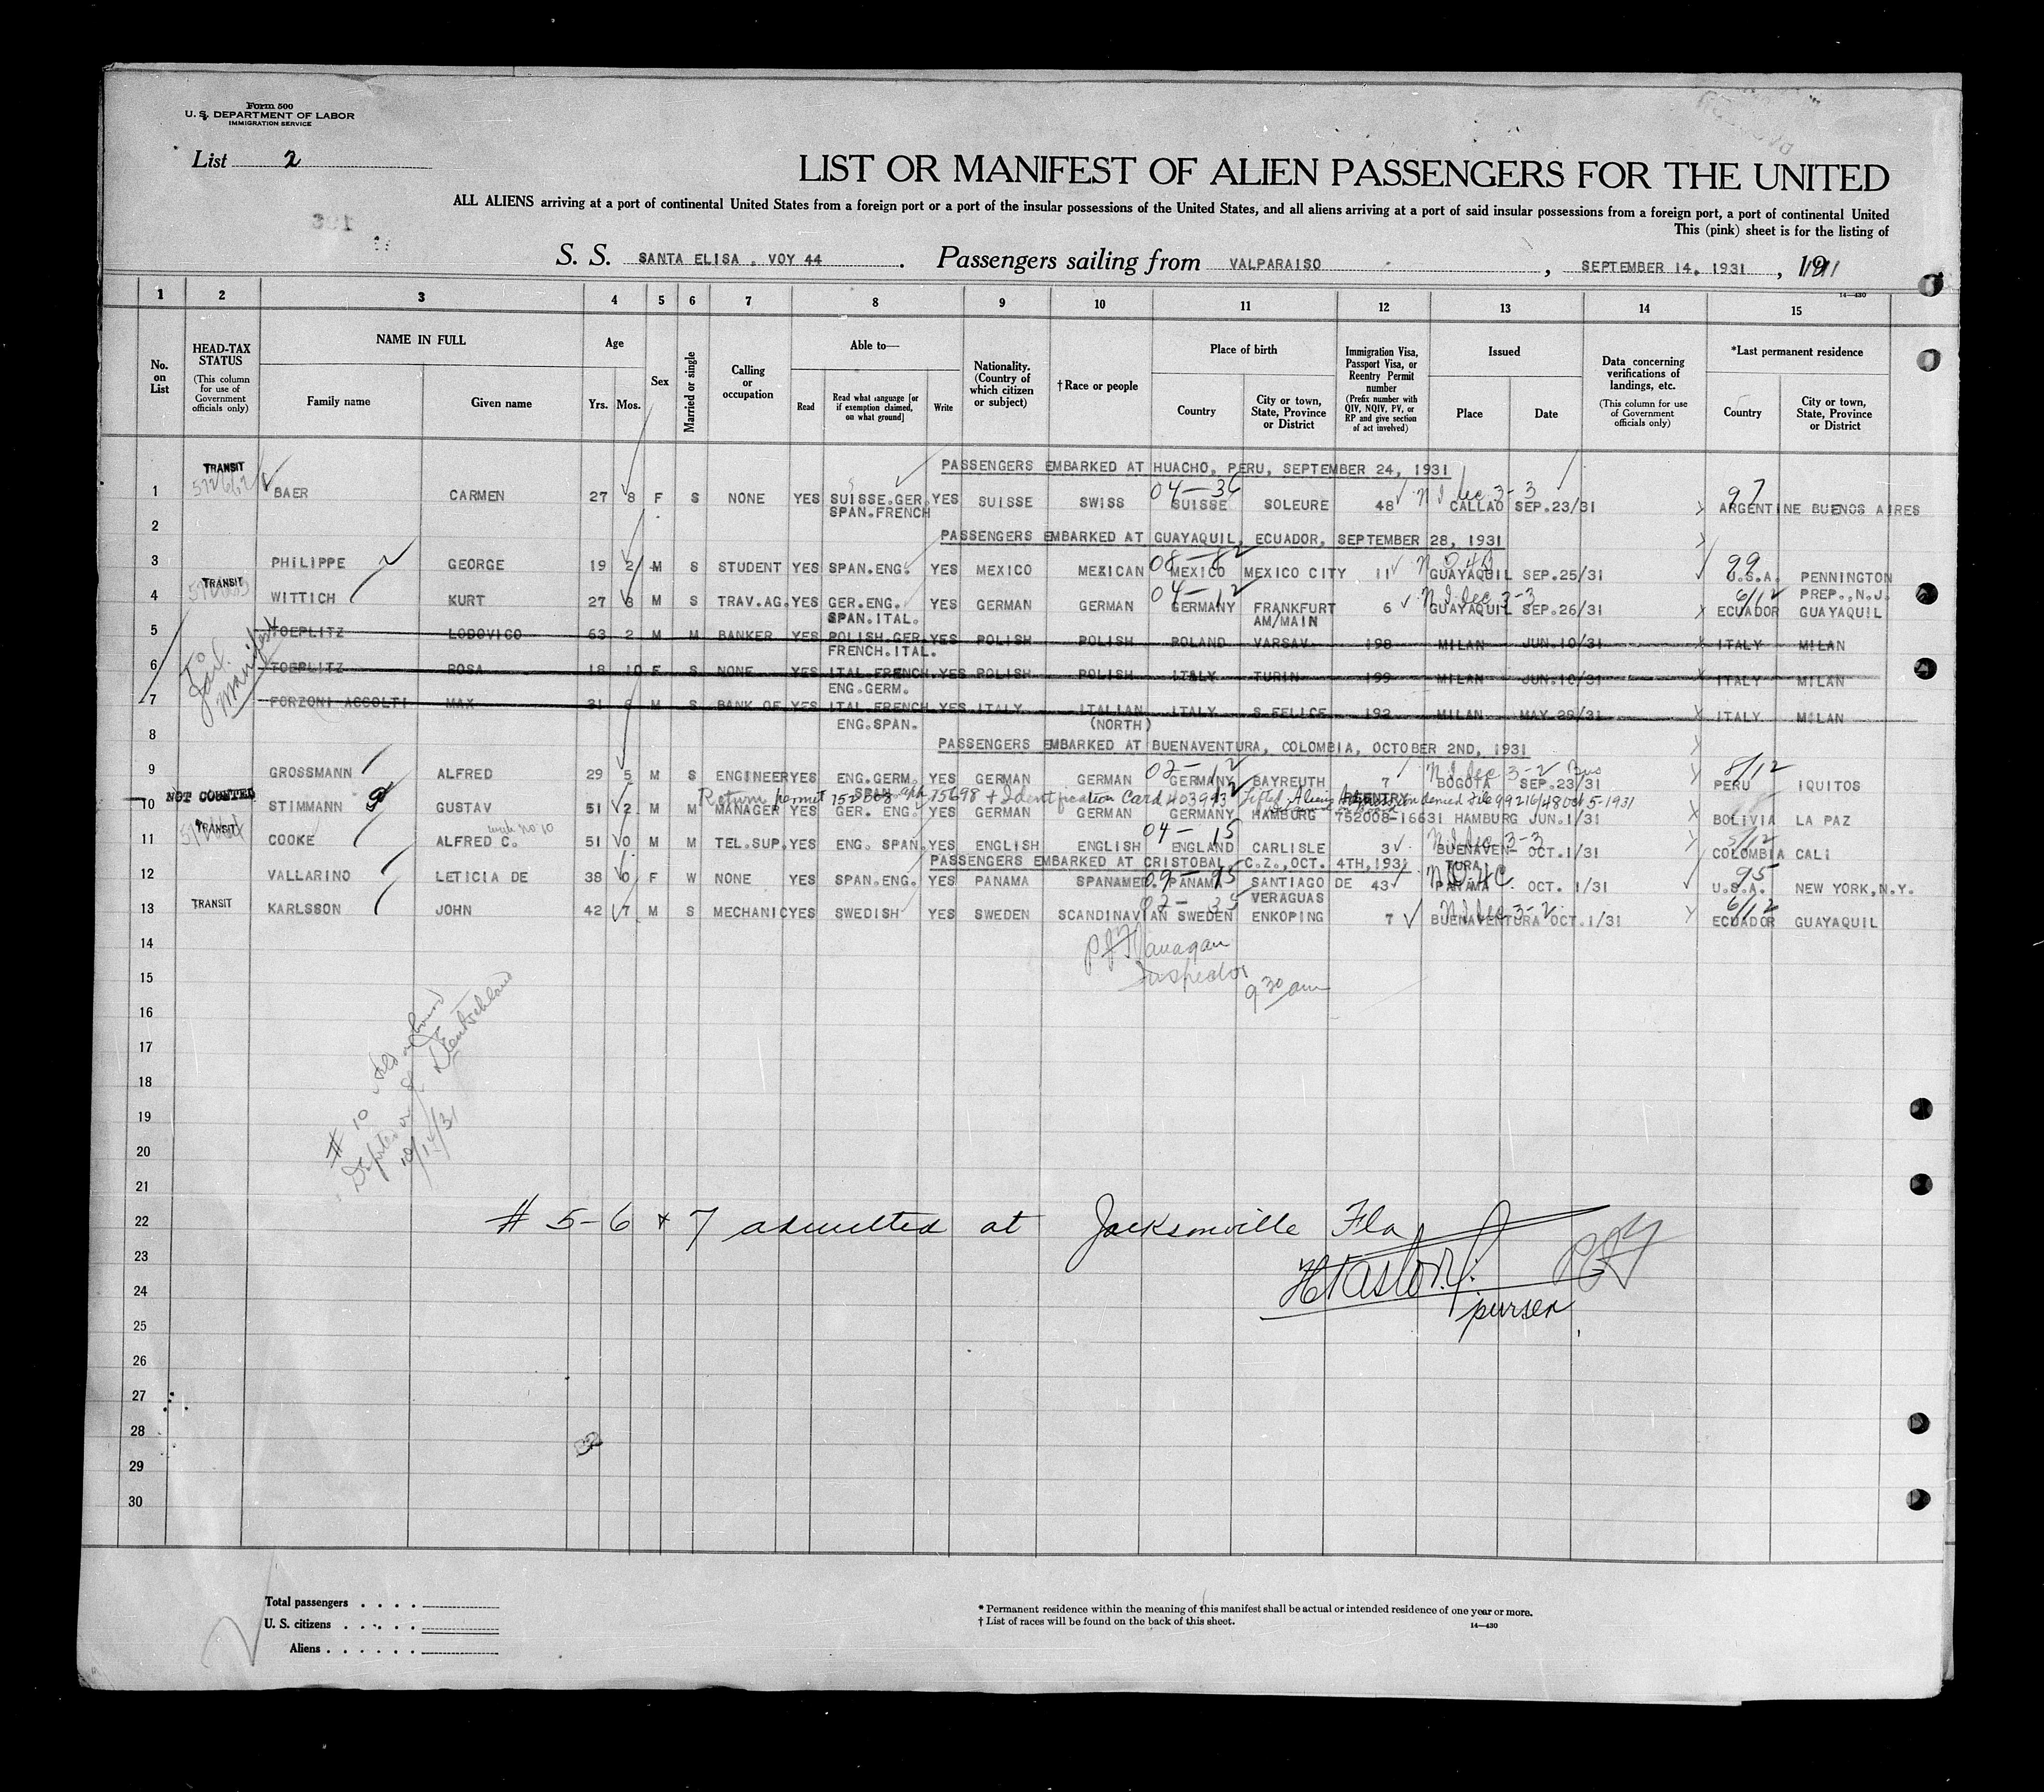 Form 500
U. S. DEPARTMENT OF LABOR
IMMIGRATION SERVICE
List 2
LIST OR MANIFEST OF ALIEN PASSENGERS FOR THE UNITED
ALL ALIENS arriving at a port of continental United States from a foreign port or a port of the insular possessions of the United States, and all aliens arriving at a port of said insular possessions from a foreign port, a port of continental United
This (pink) sheet is for the listing of
S. S. SANTA ELISA. VOY 44. Passengers sailing from VALPARAISO, SEPTEMBER 14. 1931, 19
14—430
1 2 3 4 5 6 7 8 9 10 11 12 13 14 15
No. on List
HEAD-TAX STATUS
(This column for use of Government officials only)
NAME IN FULL
Family name Given name
Age
Yrs. Mos.
Sex
Married or single
Calling or occupation
Able to—
Read Read what language [or if exemption claimed, on what ground] Write
Nationality. (Country of which citizen or subject)
† Race or people
Place of birth
Country City or town, State, Province or District
Immigration Visa, Passport Visa, or Reentry Permit number
(Prefix number with QIV, NQIV, PV, or RP and give section of act involved)
Issued
Place Date
Data concerning verifications of landings, etc.
(This column for use of Government officials only)
*Last permanent residence
Country City or town, State, Province or District
PASSENGERS EMBARKED AT HUACHO, PERU, SEPTEMBER 24, 1931
TRANSIT
04-36 97
1 BAER CARMEN 27 8 F S NONE YES SUISSE.GER. YES SUISSE SWISS SUISSE SOLEURE 48 CALLAO SEP.23/31 ARGENTINE BUENOS AIRES
SPAN.FRENCH
2
PASSENGERS EMBARKED AT GUAYAQUIL, ECUADOR, SEPTEMBER 28, 1931
08-82 99
3 PHILIPPE GEORGE 19 2 M S STUDENT YES SPAN.ENG. YES MEXICO MEXICAN MEXICO MEXICO CITY 11 GUAYAQUIL SEP.25/31 U.S.A. PENNINGTON
PREP.,N.J.
TRANSIT
04-12 6/12
4 WITTICH KURT 27 8 M S TRAV.AG. YES GER.ENG. YES GERMAN GERMAN GERMANY FRANKFURT 6 GUAYAQUIL SEP.26/31 ECUADOR GUAYAQUIL
SPAN.ITAL. AM/MAIN
5 TOEPLITZ LODOVICO 63 2 M M BANKER YES POLISH.GER. YES POLISH POLISH POLAND VARSAV 198 MILAN JUN.10/31 ITALY MILAN
FRENCH.ITAL.
6 TOEPLITZ ROSA 18 10 F S NONE YES ITAL.FRENCH. YES POLISH POLISH ITALY TURIN 199 MILAN JUN.10/31 ITALY MILAN
ENG.GERM.
7 FORZONI ACCOLTI MAX 31 6 M S BANK OF YES ITAL.FRENCH YES ITALY ITALIAN ITALY S.FELICE 192 MILAN MAY 29/31 ITALY MILAN
ENG.SPAN. (NORTH)
8
PASSENGERS EMBARKED AT BUENAVENTURA, COLOMBIA, OCTOBER 2ND, 1931
02-12 8/12
9 GROSSMANN ALFRED 29 5 M S ENGINEER YES ENG.GERM. YES GERMAN GERMAN GERMANY BAYREUTH 7 BOGOTA SEP.23/31 PERU IQUITOS
SPAN.
NOT COUNTED
Return permit 752008 15698 & Identification Card 403993 Lifted Alien's admission denied file 99216/48 Oct 5-1931
REENTRY
10 STIMMANN GUSTAV 51 2 M M MANAGER YES GER. ENG. YES GERMAN GERMAN GERMANY HAMBURG 752008-16631 HAMBURG JUN.1/31 BOLIVIA LA PAZ
TRANSIT
04-15 5/12
11 COOKE ALFRED C. 51 0 M M TEL.SUP. YES ENG. SPAN. YES ENGLISH ENGLISH ENGLAND CARLISLE 3 BUENAVEN- OCT.1/31 COLOMBIA CALI
TURA
PASSENGERS EMBARKED AT CRISTOBAL, C.Z.,OCT. 4TH,1931
09-95 95
12 VALLARINO LETICIA DE 38 0 F W NONE YES SPAN.ENG. YES PANAMA SPANAMED. PANAMA SANTIAGO DE 43 PANAMA OCT. 1/31 U.S.A. NEW YORK,N.Y.
VERAGUAS
TRANSIT
6/12
13 KARLSSON JOHN 42 7 M S MECHANIC YES SWEDISH YES SWEDEN SCANDINAVIAN SWEDEN ENKOPING 7 BUENAVENTURA OCT.1/31 ECUADOR GUAYAQUIL
14
P J Flanagan
15
Inspector
9 30 am
16
17
18
19
# 10
Deutschland
10/14/31
20
21
22
# 5-6 & 7 admitted at Jacksonville Fla
23
24
purser
25
26
27
28
29
30
Total passengers
U. S. citizens
Aliens
* Permanent residence within the meaning of this manifest shall be actual or intended residence of one year or more.
† List of races will be found on the back of this sheet.
14—430